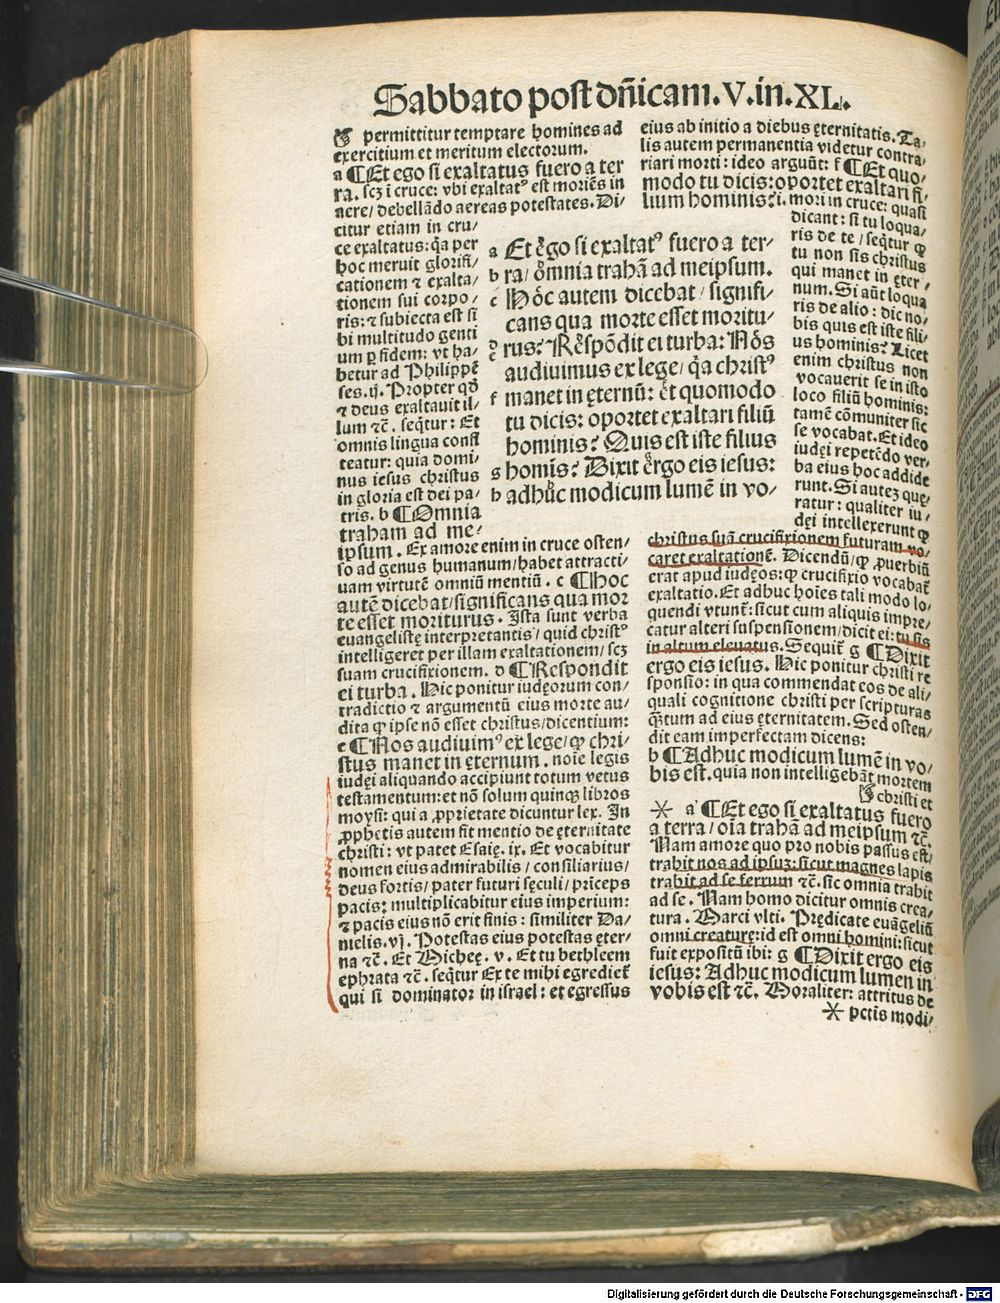 Sabbato post dñicam.V.in.XL.
permittitur temptare homines ad
exercitium et meritum electorum.
a ¶Et ego si exaltatus fuero a ter
ra. scꝫ i cruce: vbi exaltatꝰ est moriẽs in
aere/ debellãdo aereas potestates. Di⸗
citur etiam in cru⸗
ce exaltatus: q̃a per
hoc meruit glorifi⸗
cationem ⁊ exalta⸗
tionem sui corpo⸗
ris: ⁊ subiecta est si
bi multitudo genti
um ꝑ fidem: vt ha⸗
betur ad Philippẽ
ses. ij. Propter qđ
⁊ deus exaltauit il⸗
lum ⁊c̃. seq̃tur: Et
omnis lingua confi
teatur: quia domi⸗
nus iesus christus
in gloria est dei pa⸗
tris. b ¶Omnia
traham ad me⸗
ipsum. Ex amore enim in cruce osten⸗
so ad genus humanum/ habet attracti⸗
uam virtutẽ omniũ mentiũ. c ¶Hoc
autẽ dicebat/ significans qua mor
te esset moriturus. Ista sunt verba
euangelistę interpretantis/ quid christꝰ
intelligeret per illam exaltationem/ scꝫ
suam crucifixionem. d ¶Respondit
ei turba. Hic ponitur iudęorum con⸗
tradictio ⁊ argumentũ eius morte au⸗
dita ꝙ ipse nõ esset christus/ dicentium:
e ¶Nos audiuimꝰ ex lege/ ꝙ chri⸗
stus manet in ęternum. noĩe legis
iudęi aliquando accipiunt totum vetus
testamentum: et nõ solum quinqꝫ libros
moysi: qui a ꝓprietate dicuntur lex. In
ꝓphetis autem fit mentio de ęternitate
christi: vt patet Esaię. ix. Et vocabitur
nomen eius admirabilis/ consiliarius/
deus fortis/ pater futuri sęculi/ prĩceps
pacis: multiplicabitur eius imperium:
⁊ pacis eius nõ erit finis: similiter Da⸗
nielis. vij. Potestas eius potestas ęter⸗
na ⁊c̃. Et Micheę. v. Et tu bethleem
ephrata ⁊c̃. seq̃tur Ex te mihi egrediet̃
qui sit dominator in israel: et egressus
a Et ego si exaltatꝰ fuero a ter⸗
b ra/ omnia trahã ad meipsum.
c Hoc autem dicebat/ signifi⸗
cans qua morte esset moritu⸗
d rus. Respõdit ei turba: Nos
e audiuimus ex lege/ q̃a christꝰ
f manet in ęternũ: et quomodo
tu dicis: oportet exaltari filiũ
hominis? Quis est iste filius
g homĩs? Dixit ergo eis iesus:
h adhuc modicum lumẽ in vo⸗
eius ab initio a diebus ęternitatis. Ta⸗
lis autem permanentia videtur contra⸗
riari morti: ideo arguũt: f ¶Et quo⸗
modo tu dicis: oportet exaltari fi⸗
lium hominis? i. mori in cruce: quasi
dicant: si tu loqua⸗
ris de te/ seq̃tur ꝙ
tu non sis christus
qui manet in ęter⸗
num. Si aũt loqua
ris de alio: dic no⸗
bis quis est iste fili⸗
us hominis? Licet
enim christus non
vocauerit se in isto
loco filiũ hominis:
tamẽ cõmuniter sic
se vocabat. Et ideo
iudęi repetẽdo ver⸗
ba eius hoc addide
runt. Si autẽ quę⸗
ratur: qualiter iu⸗
dęi intellexerunt ꝙ
christus suã crucifixionem futuram vo⸗
caret exaltationẽ. Dicendũ/ ꝙ ꝓuerbiũ
erat apud iudęos: ꝙ crucifixio vocabat̃
exaltatio. Et adhuc hoĩes tali modo lo⸗
quendi vtunt̃: sicut cum aliquis impre⸗
catur alteri suspensionem/ dicit ei: tu sis
in altum eleuatus. Sequit̃ g ¶Dixit
ergo eis iesus. Hic ponitur christi re
sponsio: in qua commendat eos de ali⸗
quali cognitione christi per scripturas
q̃tum ad eius ęternitatem. Sed osten⸗
dit eam imperfectam dicens:
h ¶Adhuc modicum lumẽ in vo⸗
bis est. quia non intelligebãt mortem
christi et
* a ¶Et ego si exaltatus fuero
a terra/ oĩa trahã ad meipsum ⁊c̃.
Nam amore quo pro nobis passus est/
trahit nos ad ipsuꝫ: sicut magnes lapis
trahit ad se ferrum ⁊c̃. sic omnia trahit
ad se. Nam homo dicitur omnis crea⸗
tura. Marci vlti. Prędicate euãgeliũ
omni creaturę: id est omni homini: sicut
fuit expositũ ibi: g ¶Dixit ergo eis
iesus: Adhuc modicum lumen in
vobis est ⁊c̃. Moraliter: attritus de
* pctĩs modi⸗
Digitalisierung gefördert durch die Deutsche Forschungsgemeinschaft - DFG